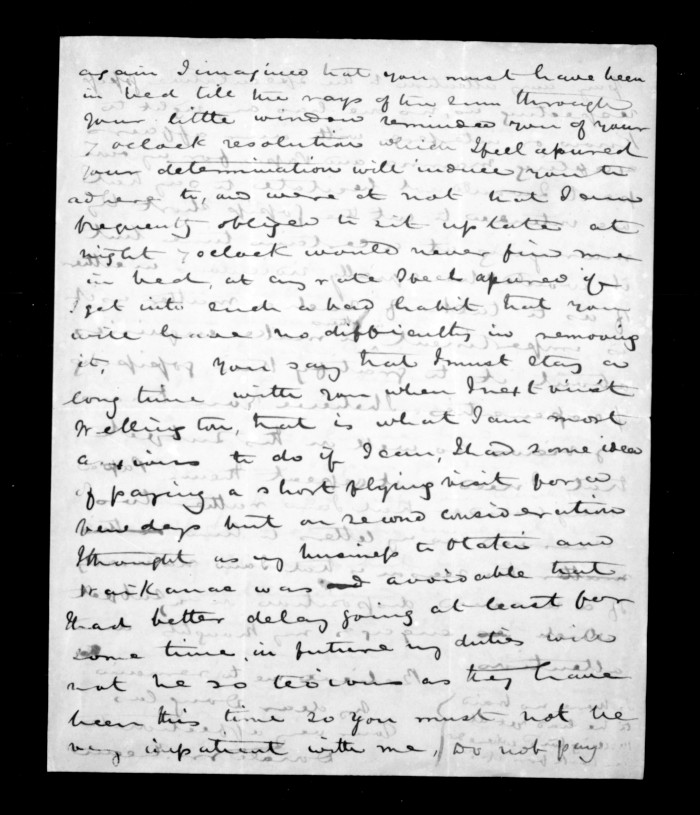 again I imagined that you must have been
in bed till the rays of the sun through
your little window reminded you of your
7 oclock resolution which I feel assured
your determination will induce you to
adhere to, and were it not that I am
frequently obliged to sit up late at
night 7 oclock would never find me
in bed, at any rate I feel assured if
I get into such a bad habit that you
will have no difficulty in removing
it, you say that I must stay a
long time with you when I next visit
Wellington, that is what I am most
anxious to do if I can, I had some idea
of paying a short flying visit for a
few days but on second consideration
I thought as my business to Otaki and
Waikanae was avoidable that
I had better delay going at least for
some time, in future my duties will
not be so tedious as they have
been this time so you must not be
very impatient with me, Do not pay